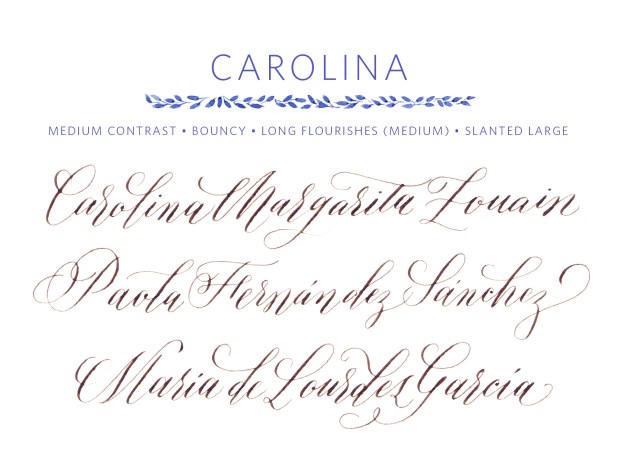 CAROLINA
MEDIUM CONTRAST • BOUNCY • LONG FLOURISHES (MEDIUM) • SLANTED LARGE
Carolina Margarita Zouain
Paola Fernández Sánchez
Maria de Lourdes García